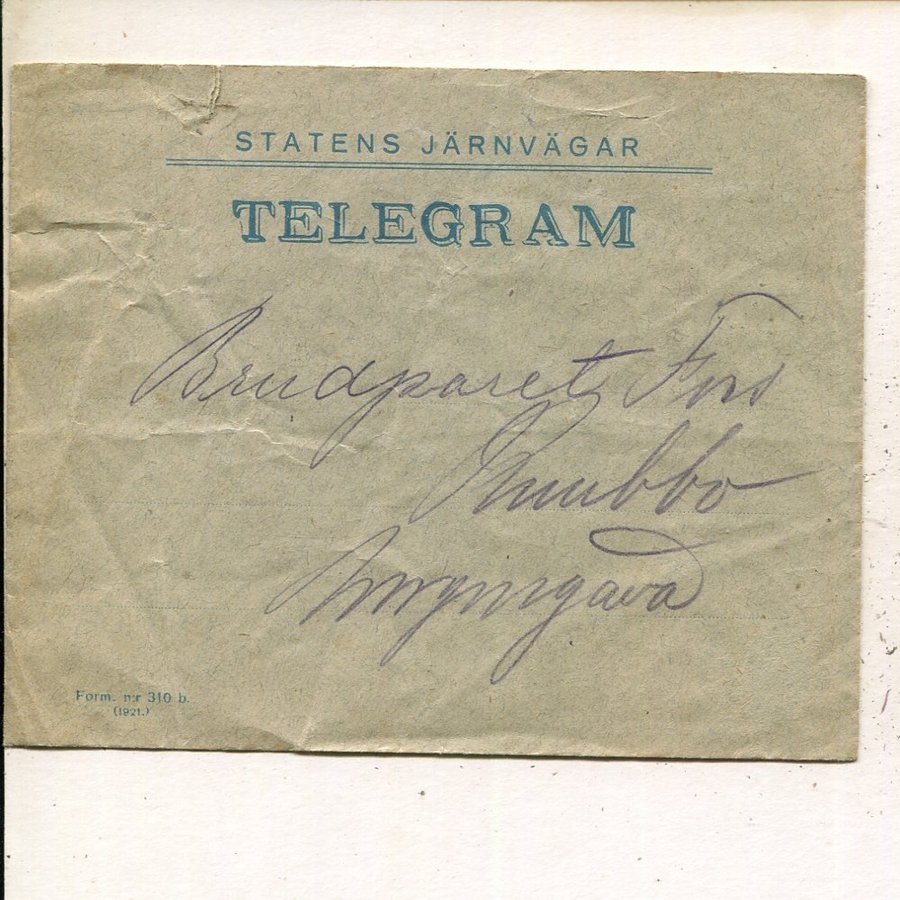 STATENS JÄRNVÄGAR
TELEGRAM
Brudparet Fors
Knubbo
Morgongåva
Form. n:r 310 b.
(1921.)